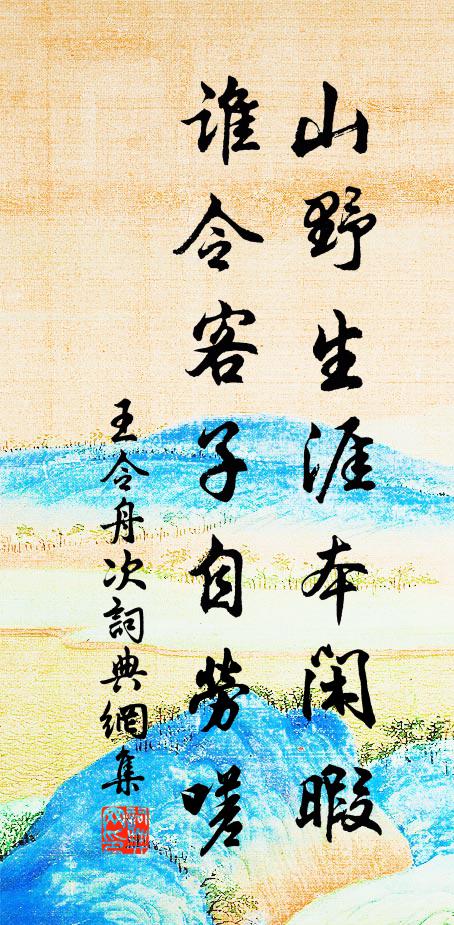 山野生涯本閑暇
誰令客子自勞嗟
王令舟次詞典網集